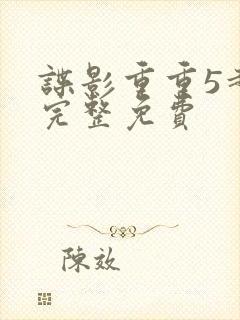 諜影重重5
完整免費
陳效